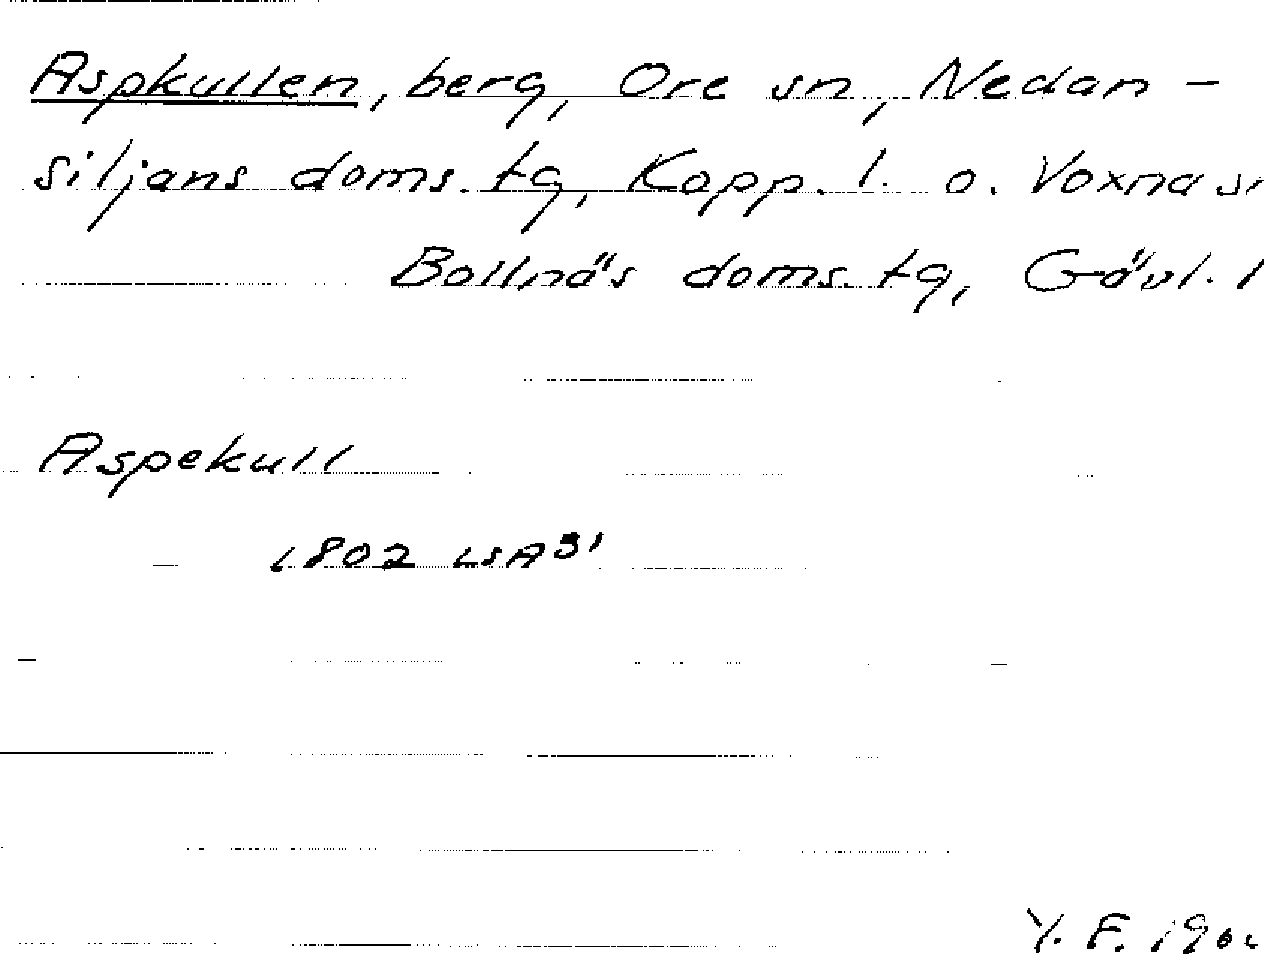 Aspkullen, berg, Ore sn, Nedan-
siljans doms. tg, Kopp. l. o. Voxna sn
Bollnäs doms. tg, Gävl. l
Aspekull
1802 LSA
Y. F.